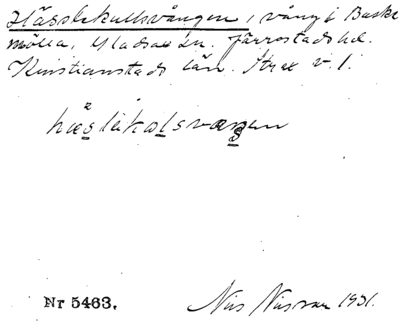 Hässlekullsvången, vång i Baske
mölla, Gladsax sn. Järrestads hd.
Kristianstads län.
hæslekolsvaŋen
Nr 5463. Nils Nilsson 1931.